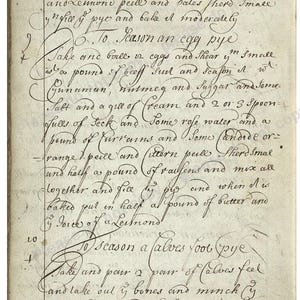 and Lemond peell and dates shred small
yⁿ fill yᵉ pye and bake it moderately
9 To Season an egg pye
Take and balle 12 eggs and Shear yᵐ small
a pound of beeff Suet and Season it wᵗ
Cynnumun, nutmeg and Sugar and Some
Salt and a gill of Cream and 2 or 3 Spoon
fulls of Seck and Some rose water and a
pound of Currams and Some Candide or-
range peill and cittern peill Shred Smal
and half a pound of raisens and mix all
together and fill yʳ pye and when it is
baked put in half a pound of butter and
yᵉ Joice of a Lemond
10 To Season a Calves foot pye
Take and pair 2 pair of Calves feet
and take out yᵉ bones and minch yᵉ